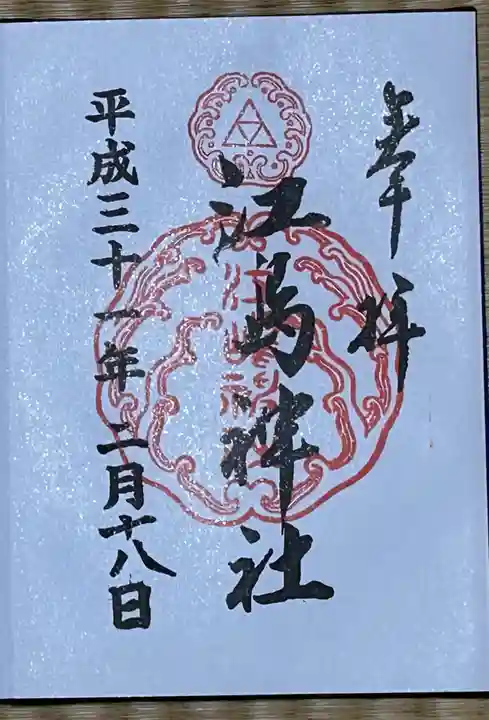 奉拝
江島神社
平成三十一年 二月十八日